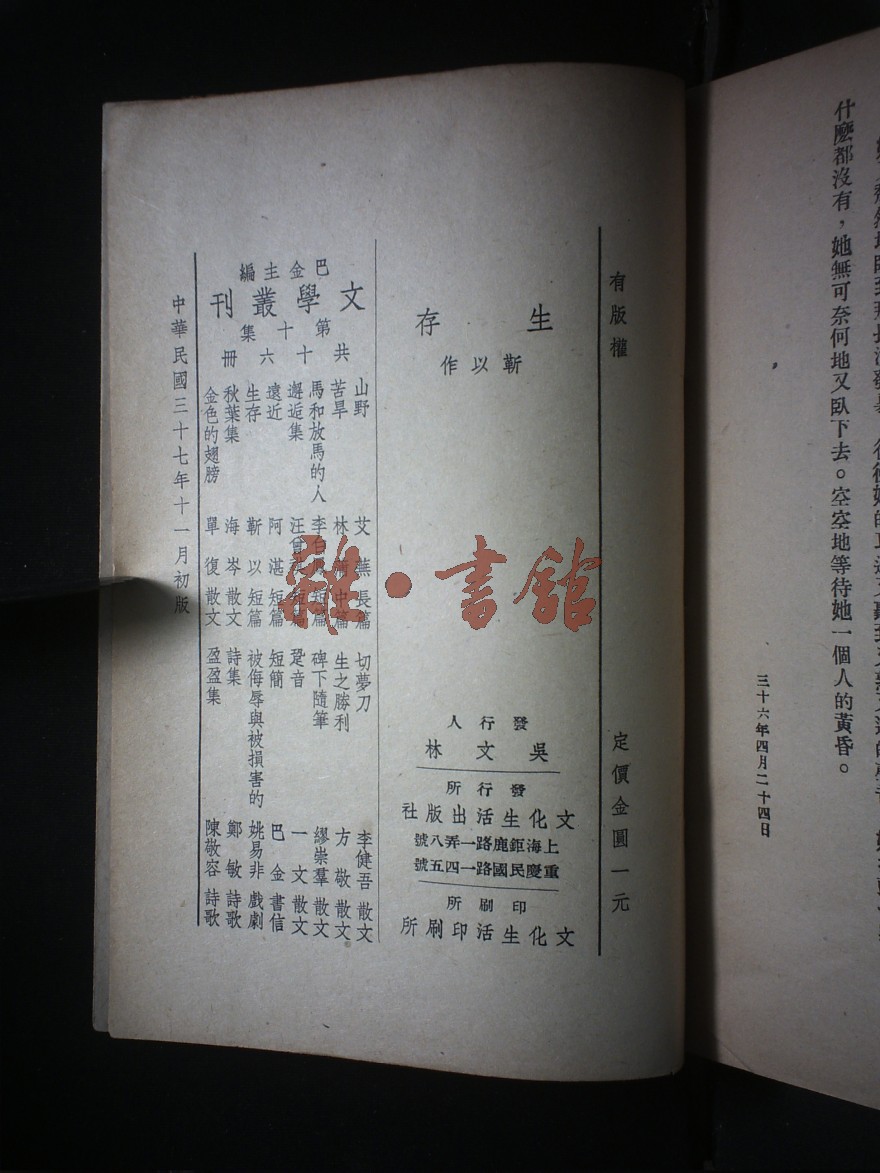 什麽都沒有，她無可奈何地又臥下去。空空地等待她一個人的黃昏。
三十六年四月二十四日
有版權 定價金圓一元
生存
靳以作
發行人
吳文林
發行所
文化生活出版社
上海鉅鹿路一弄八號
重慶民國路一四五號
印刷所
文化生活印刷所
巴金主編
文學叢刊
第十集
共十六冊
山野 艾蕪 長篇 切夢刀 李健吾 散文
苦旱 林蒲 中篇 生之勝利 方敬 散文
馬和放馬的人 李白鳳 短篇 碑下隨筆 繆崇羣 散文
邂逅集 汪曾祺 短篇 跫音 一文 散文
遠近 阿湛 短篇 短簡 巴金 書信
生存 靳以 短篇 被侮辱與被損害的 姚易非 戲劇
秋葉集 海岑 散文 詩集 鄭敏 詩歌
金色的翅膀 單復 散文 盈盈集 陳敬容 詩歌
中華民國三十七年十一月初版
雜·書館